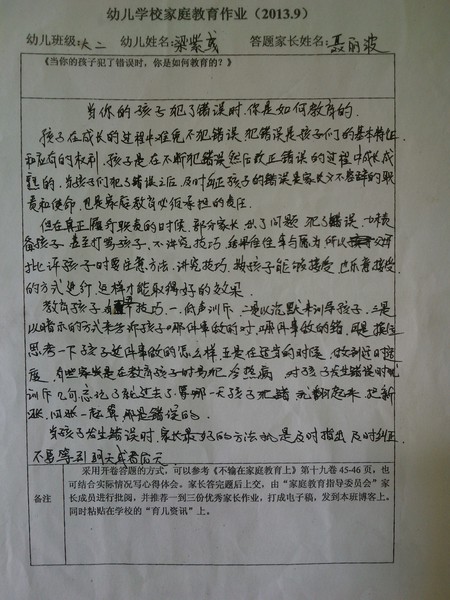 幼儿学校家庭教育作业（2013.9）
幼儿班级:大二 幼儿姓名:梁紫 答题家长姓名:聂丽波
《当你的孩子犯了错误时，你是如何教育的？》
当你的孩子犯了错误时,你是如何教育的.
孩子在成长的过程中难免不犯错误.犯错误是孩子们的基本特征
和应有的权利.孩子是在不断犯错误然后改正错误的过程中成长成
熟的.当孩子们犯了错误之后,及时纠正孩子的错误是家长义不容辞的职
责和使命,也是家庭教育必须承担的责任.
但在真正履行职责的时候,部分家长出了问题 犯了错误.一味责
备孩子 甚至打骂孩子,不讲究技巧,结果往往事与愿为.所以
批评孩子时要注意方法,讲究技巧,按孩子能够接受 也乐意接受
的方式进行.这样才能取得好的效果.
教育孩子有 技巧.一.低声训斥 二是以沉默来训导孩子.三是
以暗示的方式来告诉孩子哪件事做的对,哪件事做的错.
思考一下孩子这件事做的怎么样.五是在适当的时候,做到适时适
度.有些家长是在教育孩子时易犯 冷热病 对孩子发生错误时
训斥几句 忘记了就过去了.要哪一天孩子犯错 就翻起来把新
账,旧账一起算 那是错误的.
当孩子发生错误时,家长最好的方法就是及时指出 及时纠正.
不要等到明天或者后天
采用开卷答题的方式，可以参考《不输在家庭教育上》第十九卷 45-46 页，也
可结合实际情况写心得体会。家长答完题后上交，由“家庭教育指导委员会”家
备注 长成员进行批阅，并推荐一到三份优秀家长作业，打成电子稿，发到本班博客上。
同时粘贴在学校的“育儿资讯”上。